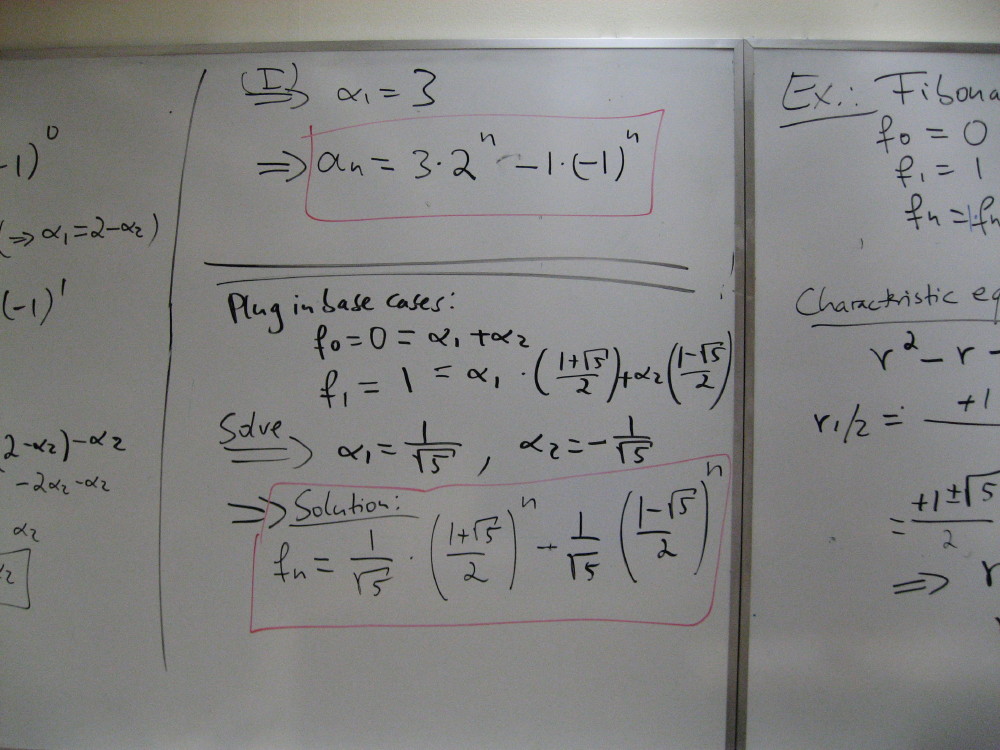 -1)^0
(⇒ α₁=2-α₂)
(-1)^1
2-α₂)-α₂
-2α₂-α₂
α₂
(I) ⇒ α₁ = 3
⇒ aₙ = 3·2^n - 1·(-1)^n
Plug in base cases:
f₀=0 = α₁+α₂
f₁ = 1 = α₁ · ((1+√5)/2)+α₂((1-√5)/2)
Solve ⇒ α₁=1/√5 , α₂=-1/√5
⇒ Solution:
fₙ = 1/√5 · ((1+√5)/2)^n - 1/√5 ((1-√5)/2)^n
Ex.: Fibona
f₀ = 0
f₁ = 1
fₙ = fₙ
Charactristic eq
r² - r -
r₁/₂ = +1
= (+1±√5)/2
⇒ r